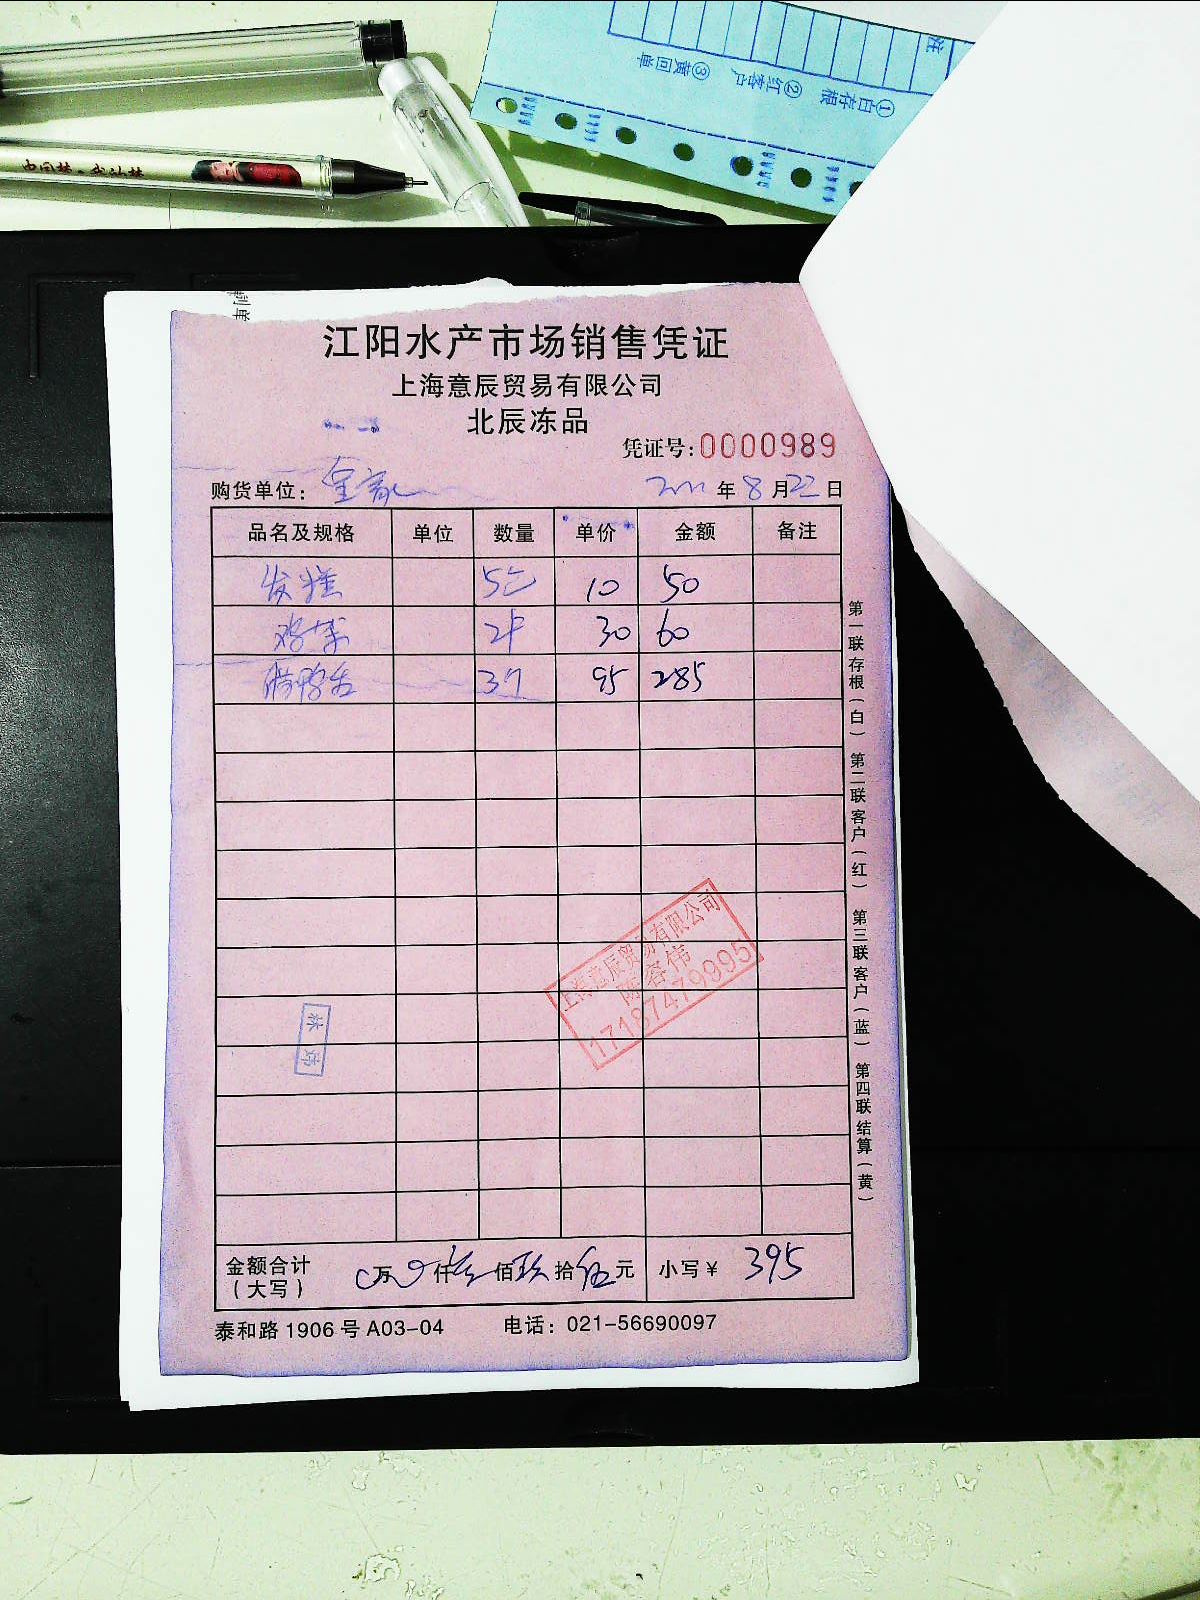 中国梦·我的梦
注
①白存根 ②红客户 ③黄回单
江阳水产市场销售凭证
上海意辰贸易有限公司
北辰冻品
凭证号:0000989
购货单位:
年 8 月 22 日
品名及规格 单位 数量 单价 金额 备注
发糕 5 10 50
2 30 60
3 95 285
第一联存根(白) 第二联客户(红) 第三联客户(蓝) 第四联结算(黄)
上海意辰贸易有限公司
陈容伟
17187479995
金额合计(大写) 万 仟叁佰玖拾伍元 小写¥ 395
泰和路1906号A03-04 电话:021-56690097